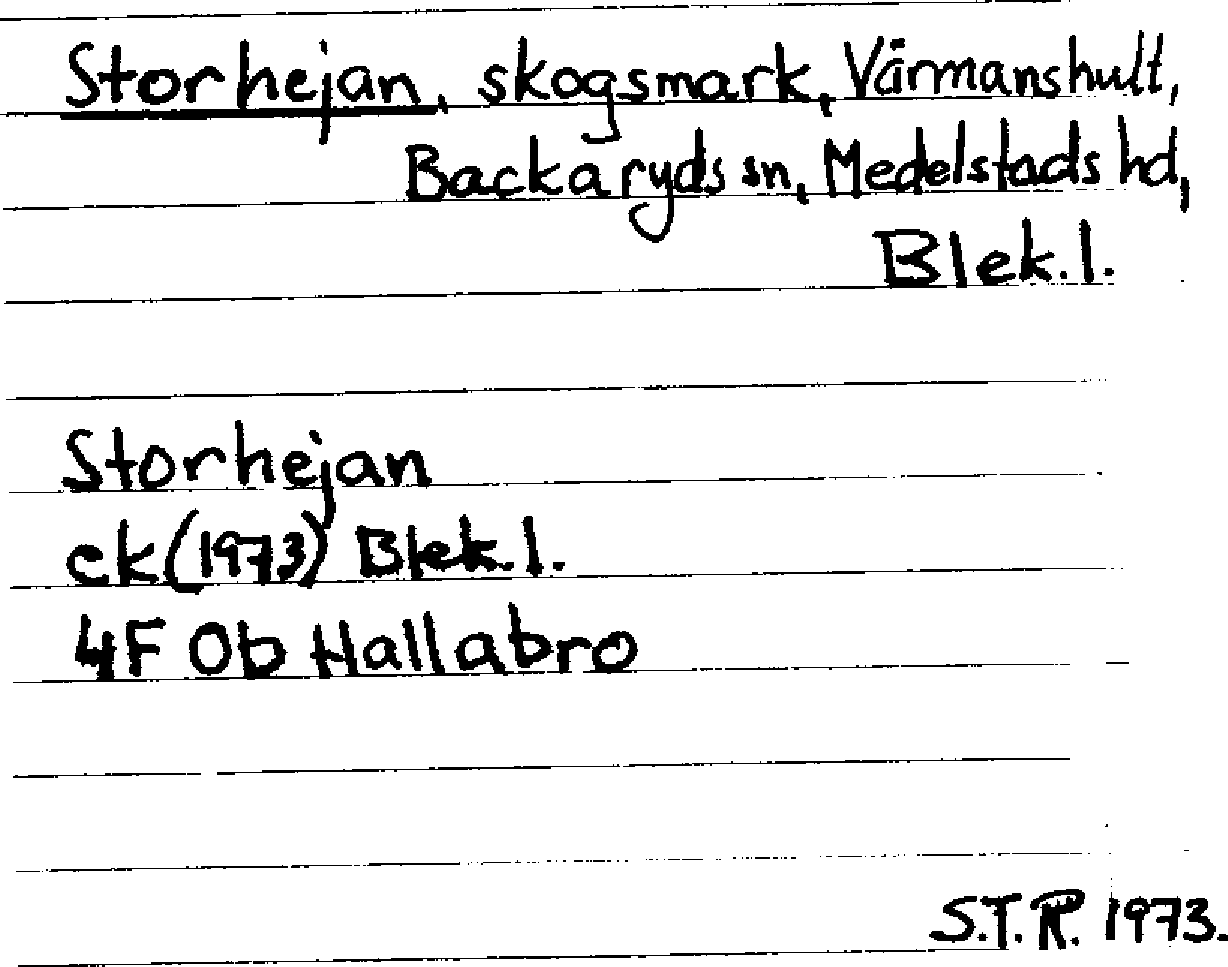 Storhejan, skogsmark, Värmanshult,
Backaryds sn, Medelstads hd,
Blek.l.
Storhejan
ek (1973) Blek.l.
4F 0b Hallabro
S.T.R. 1973.